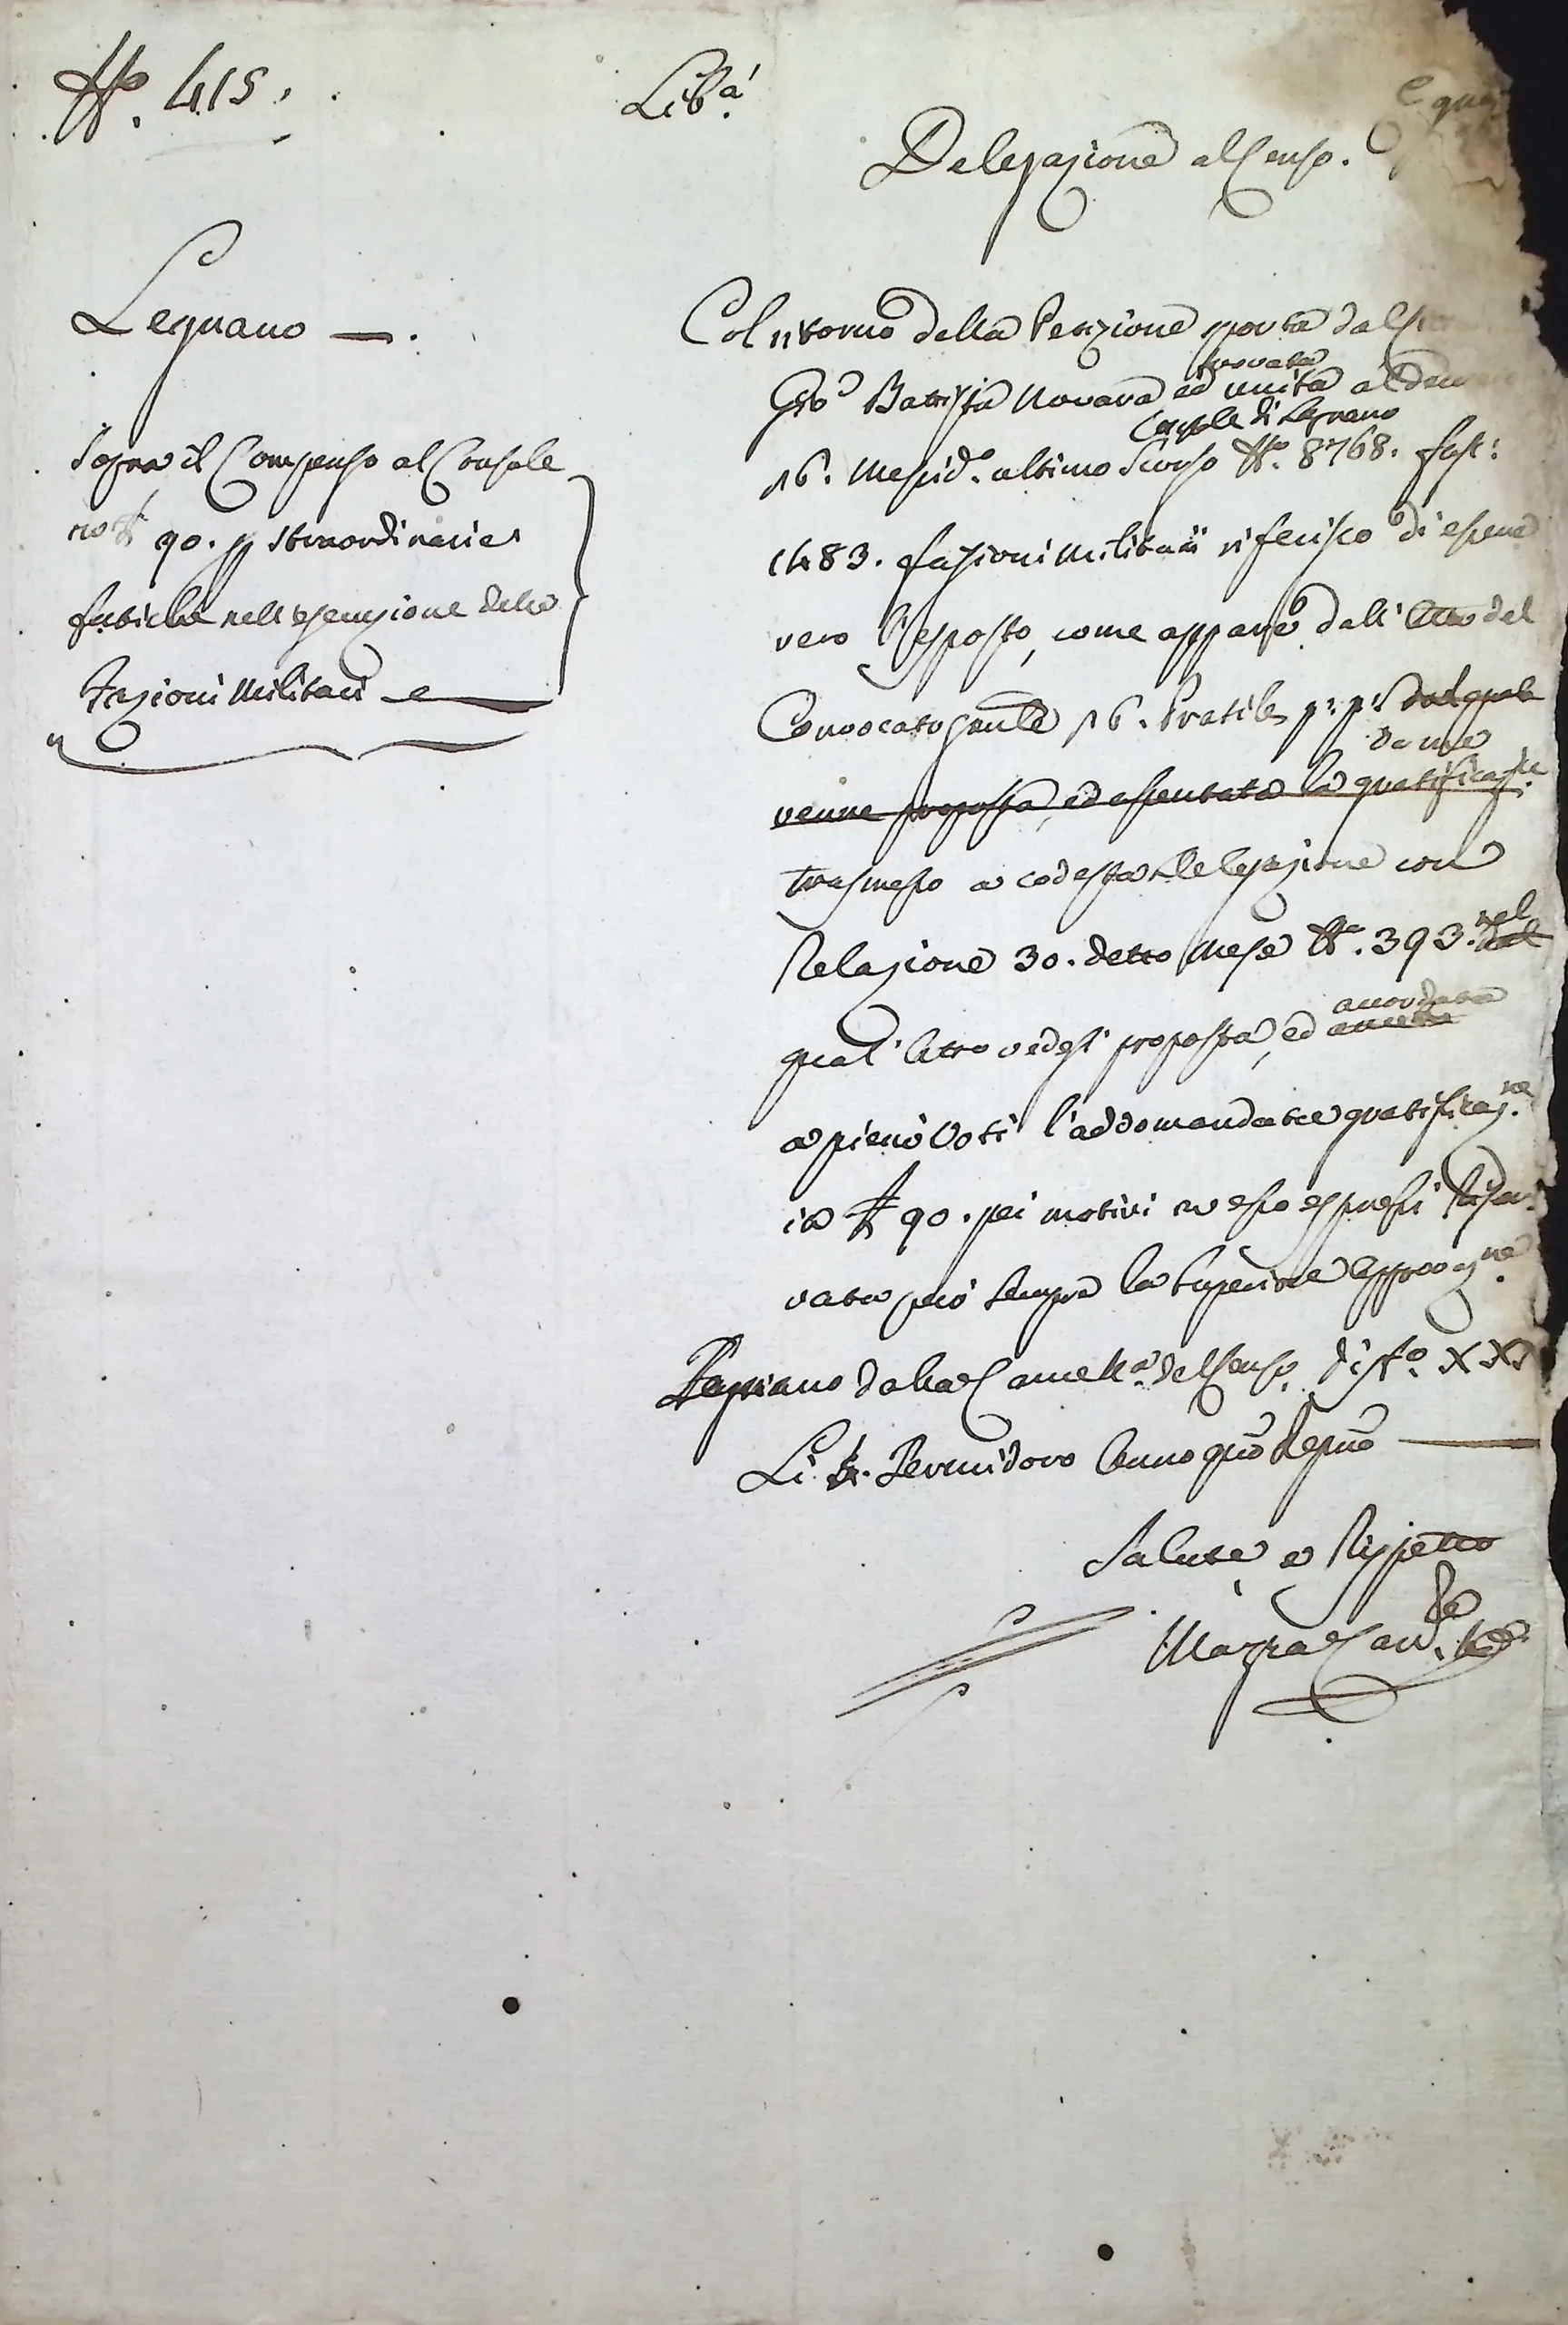 N.o 415.
Lib.a
Egua
Delegazione al Censo.
Legnano —.
Sopra il Compenso al Console
£ 90. p straordinarie
fatiche nell'esecuzione delle
Fazioni Militari
Col ritorno della Petizione sporta dal
trovata
Gio Battista Novara ed unita al
Console di Legnano
16. Messid.o ultimo Scorso N.o 8768. fasc:
1483. fazioni Militari riferisco di essere
vero l'esposto, come appare dall'Atto del
Convocato gnle 16. Pratile p: p: dal quale
da me
venne proposta, ed assentata la gratificaz.ne
trasmesso a codesta Delegazione con
Relazione 30. detto Mese N.o 393. nel dal
accordata
qual'Atto vedesi proposta, ed
a pieni Voti l'addomandata gratificaz.ne
in £ 90. pei motivi in esso espressi Riser-
vata però sempre la Superiore Approvaz.ne
Legnano dalla Cancell.a del Censo, Dist.o XXI
Li Termidoro Anno qto Repno —
Salute e Rispetto
Mazza Can.re